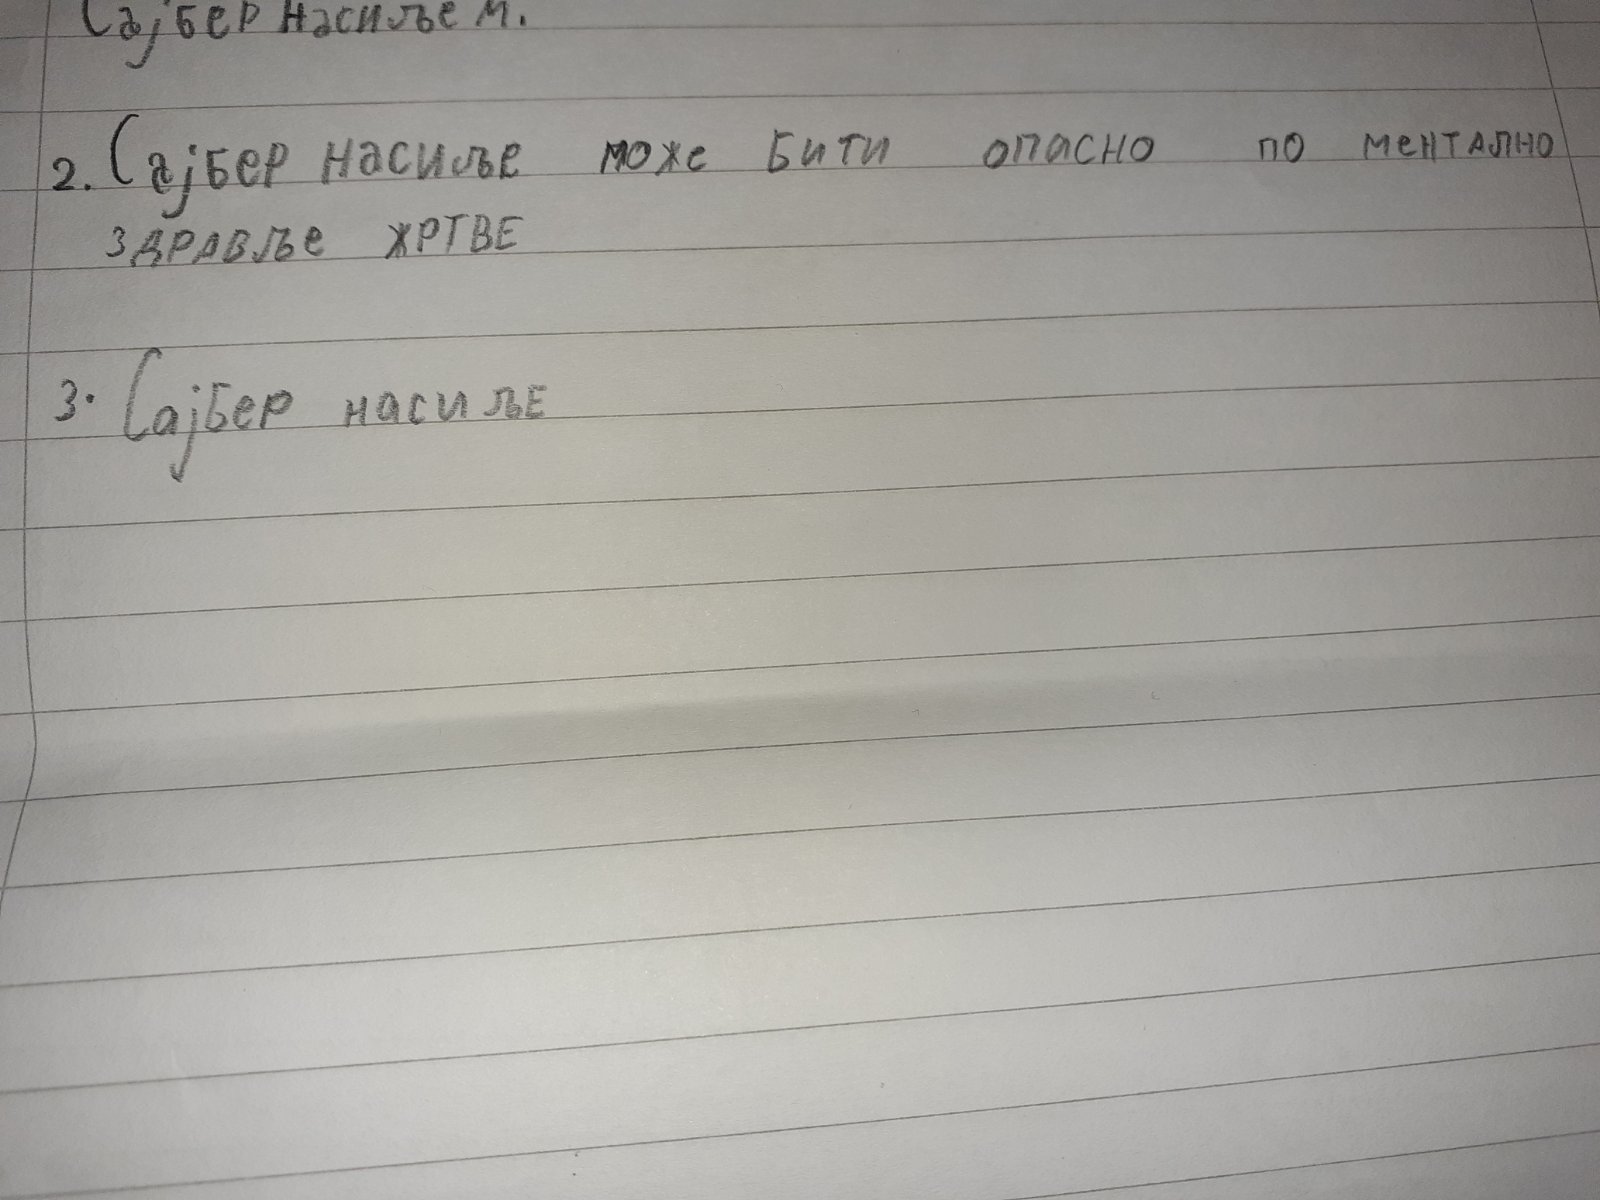 Сајбер насиље м.
2. Сајбер насиље може бити опасно по ментално
здравље жртве
3. Сајбер насиље